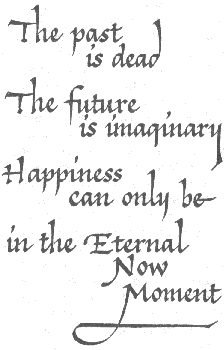 The past
is dead
The future
is imaginary
Happiness
can only be
in the Eternal
Now
Moment